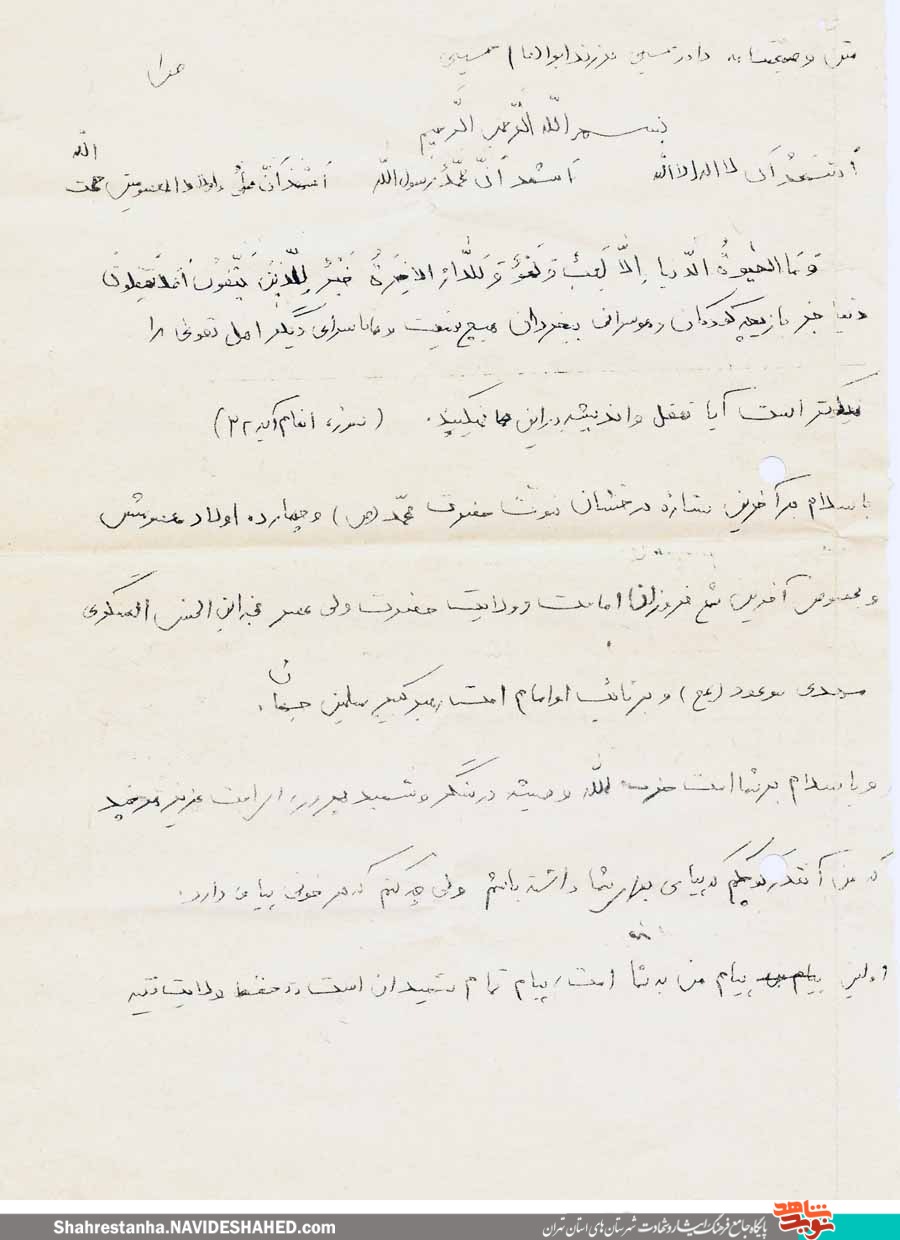 متن وصیتنامه داود حسینی فرزند ابوالقاسم حسینی
بسم اللّه الرّحمن الرّحیم
أشهدُ أن لا اله الا اللّه أشهد أنّ محمّدً رسول اللّه أشهد أنّ علیً و اولاده المعصومین حجت اللّه
وَ مَا الحیوةُ الدّنیا اِلاّ لَعِبُ وَ لَهوُ وَ لَلدّارُ الاخِرَةُ خَیْرُ لِلّذینَ یَتّقونَ أفلا تَعقِلونَ
دنیا جز بازیچه کودکان و هوسرانی بیخردان هیچ نیست و همانا سرای دیگر اهل تقوی را
نیکوتر است آیا تعقل و اندیشه در این نمیکنید. (سوره انعام آیه ۳۲)
با سلام بر آخرین ستاره درخشان نبوت حضرت محمّد (ص) و چهارده اولاد معصومش
و بخصوص آخرین شمع فروزان امامت و ولایت حضرت ولی عصر حجه ابن الحسن العسکری
مهدی موعود (عج) و بر نائب او امام امت رهبر کبیر مسلمین جهان.
و با سلام بر شما امت حزب اللّه و همیشه در سنگر و شهید پرور، ای امت عزیز هر چند
که من آنقدر کوچکم که پیامی برای شما داشته باشم ولی چه کنم که هر خونی پیامی دارد.
اولین پیام من به شما امت، پیام تمام شهیدان است و حفظ ولایت فقیه
Shahrestanha.NAVIDESHAHED.com
پایگاه جامع فرهنگ ایثار و شهادت شهرستان های استان تهران
نوید شاهد